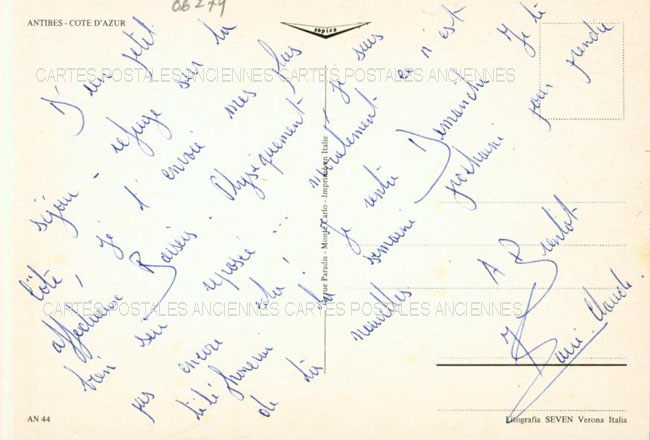 06279
ANTIBES - COTE D'AZUR
sopico
CARTES POSTALES ANCIENNES CARTES POSTALES ANCIENNES
D'un petit
séjour - refuge sur la
Côte, je t'envoie mes plus
affectueux Baisers. Physiquement je suis
bien sur reposée ... moralement ce n'est
pas encore cela! Je rentre Dimanche. Je te
téléphonerai la semaine prochaine pour prendre
de tes nouvelles.
A Bientôt
Marie-Claude.
CARTES POSTALES ANCIENNES CARTES POSTALES ANCIENNES
Paradis - Monte-Carlo - Imprimé en Italie
AN 44
Litografia SEVEN Verona Italia